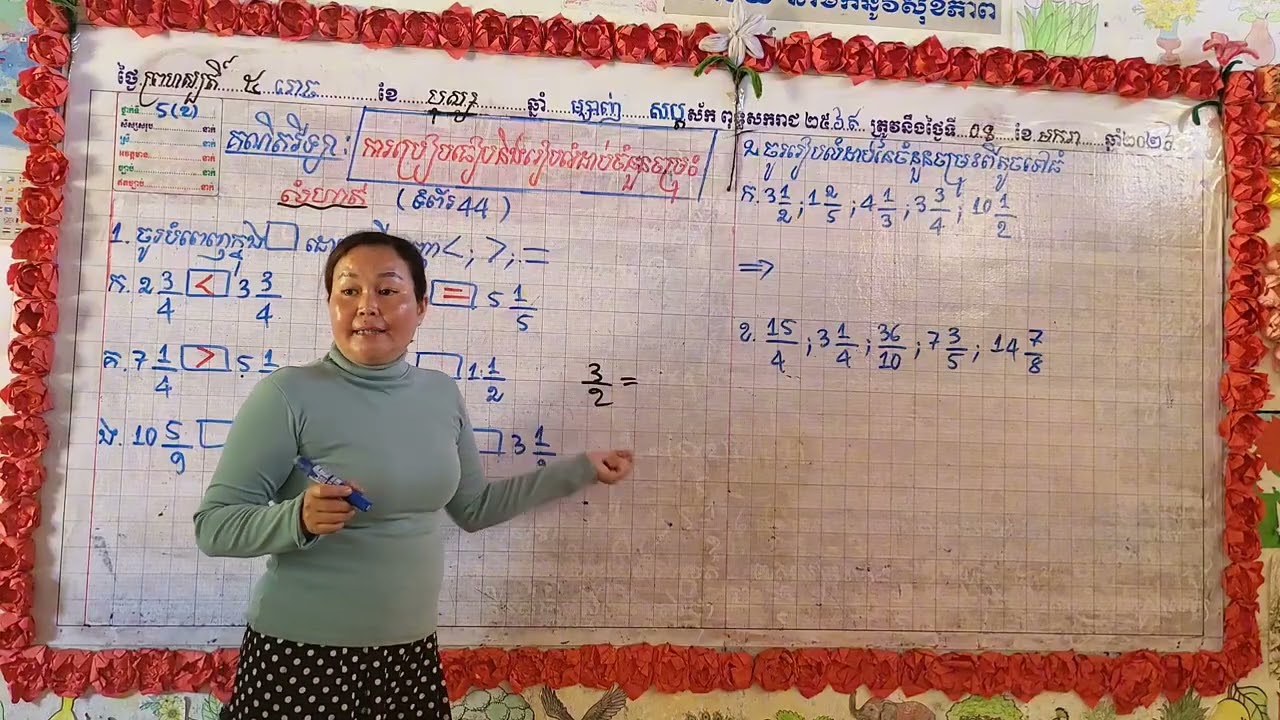 ថ្ងៃ ព្រហស្បតិ៍ ៥ រោច ខែ បុស្ស ឆ្នាំ ម្សាញ់ សប្ត ស័ក ពុទ្ធសករាជ ២៥៦៩ ត្រូវនឹងថ្ងៃទី ០៨ ខែ មករា ឆ្នាំ២០២៦
ថ្នាក់ទី 5(ខ)
គណិតវិទ្យា : ការប្រៀបធៀបនិងរៀបលំដាប់ចំនួនចម្រុះ
លំហាត់ (ទំព័រ 44)
1. ចូរបំពេញក្នុង □ < ; > ; =
ក. 2 3/4 < 3 3/4
= 5 1/5
គ. 7 1/4 > 5 1
□ 1 1/2
ង. 10 5/9 □
□ 3 1
3/2 =
2. ចូររៀបលំដាប់នៃចំនួនចម្រុះពីតូចទៅធំ
ក. 3 1/2 ; 1 2/5 ; 4 1/3 ; 3 3/4 ; 10 1/2
⇒
ខ. 15/4 ; 3 1/4 ; 36/10 ; 7 3/5 ; 14 7/8